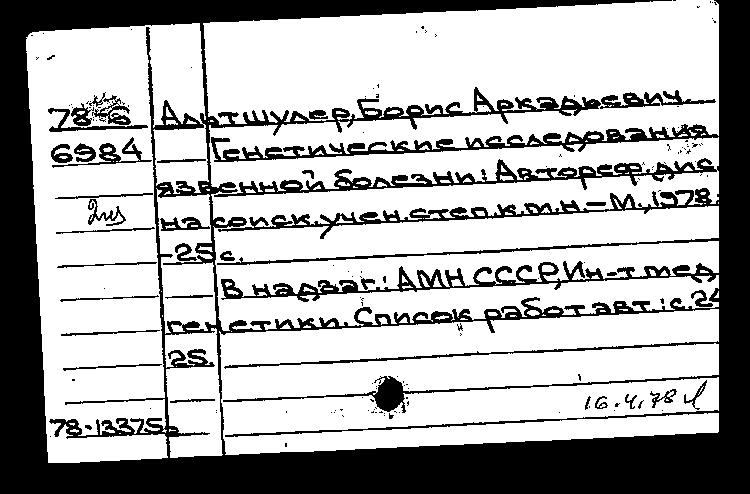 78-6 Альтшулер, Борис Аркадьевич.
6984 Генетические исследования
язвенной болезни: Автореф. дис.
на соиск. учен. степ. к.м.н. – М., 1978.
-25 с.
В надзаг.: АМН СССР, Ин-т мед.
генетики. Список работ авт.: с. 24
25.
16.4.78
78-13375